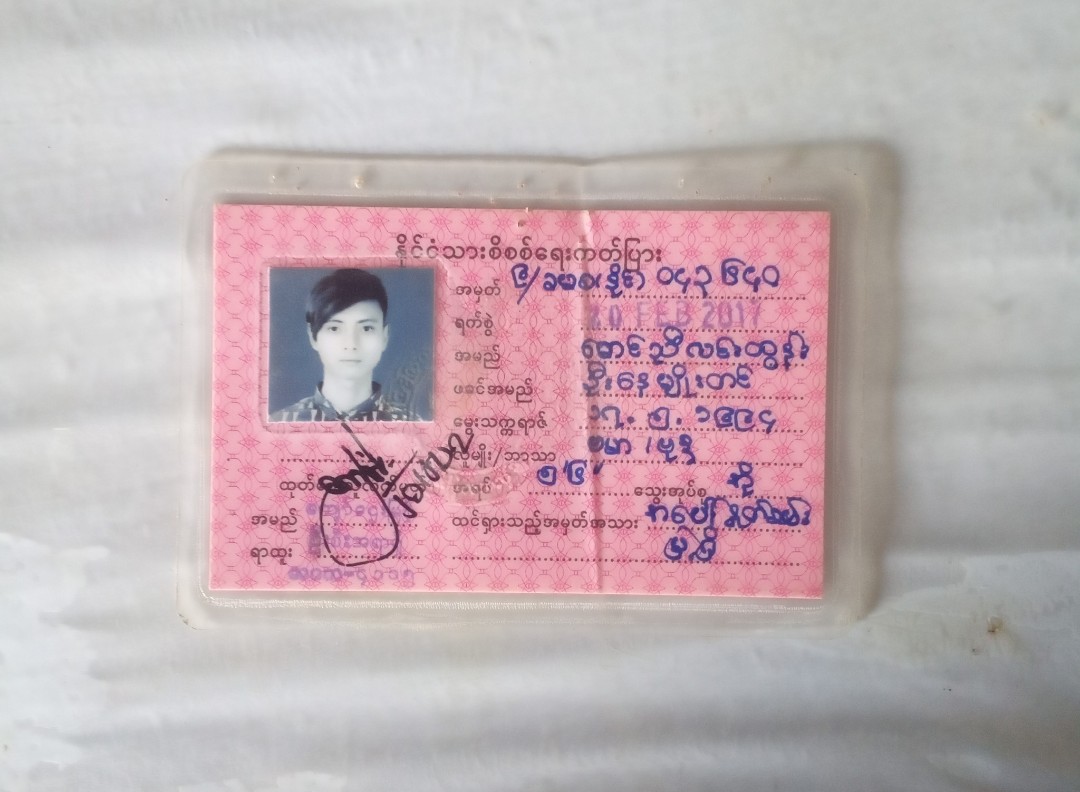 နိုင်ငံသားစိစစ်ရေးကတ်ပြား
အမှတ် ၉/ခမစ(နိုင်) ၀၄၃၆၄၀
ရက်စွဲ 20 FEB 2017
အမည် မောင်ညီလင်းထွန်း
ဖခင်အမည် ဦးနေမျိုးတင်
မွေးသက္ကရာဇ် ၁၇. ၅. ၁၉၉၄
လူမျိုး/ဘာသာ ဗမာ/ဗုဒ္ဓ
အရပ် ၅'၆" သွေးအုပ်စု အို
ထင်ရှားသည့်အမှတ်အသား
အမည်
ရာထူး